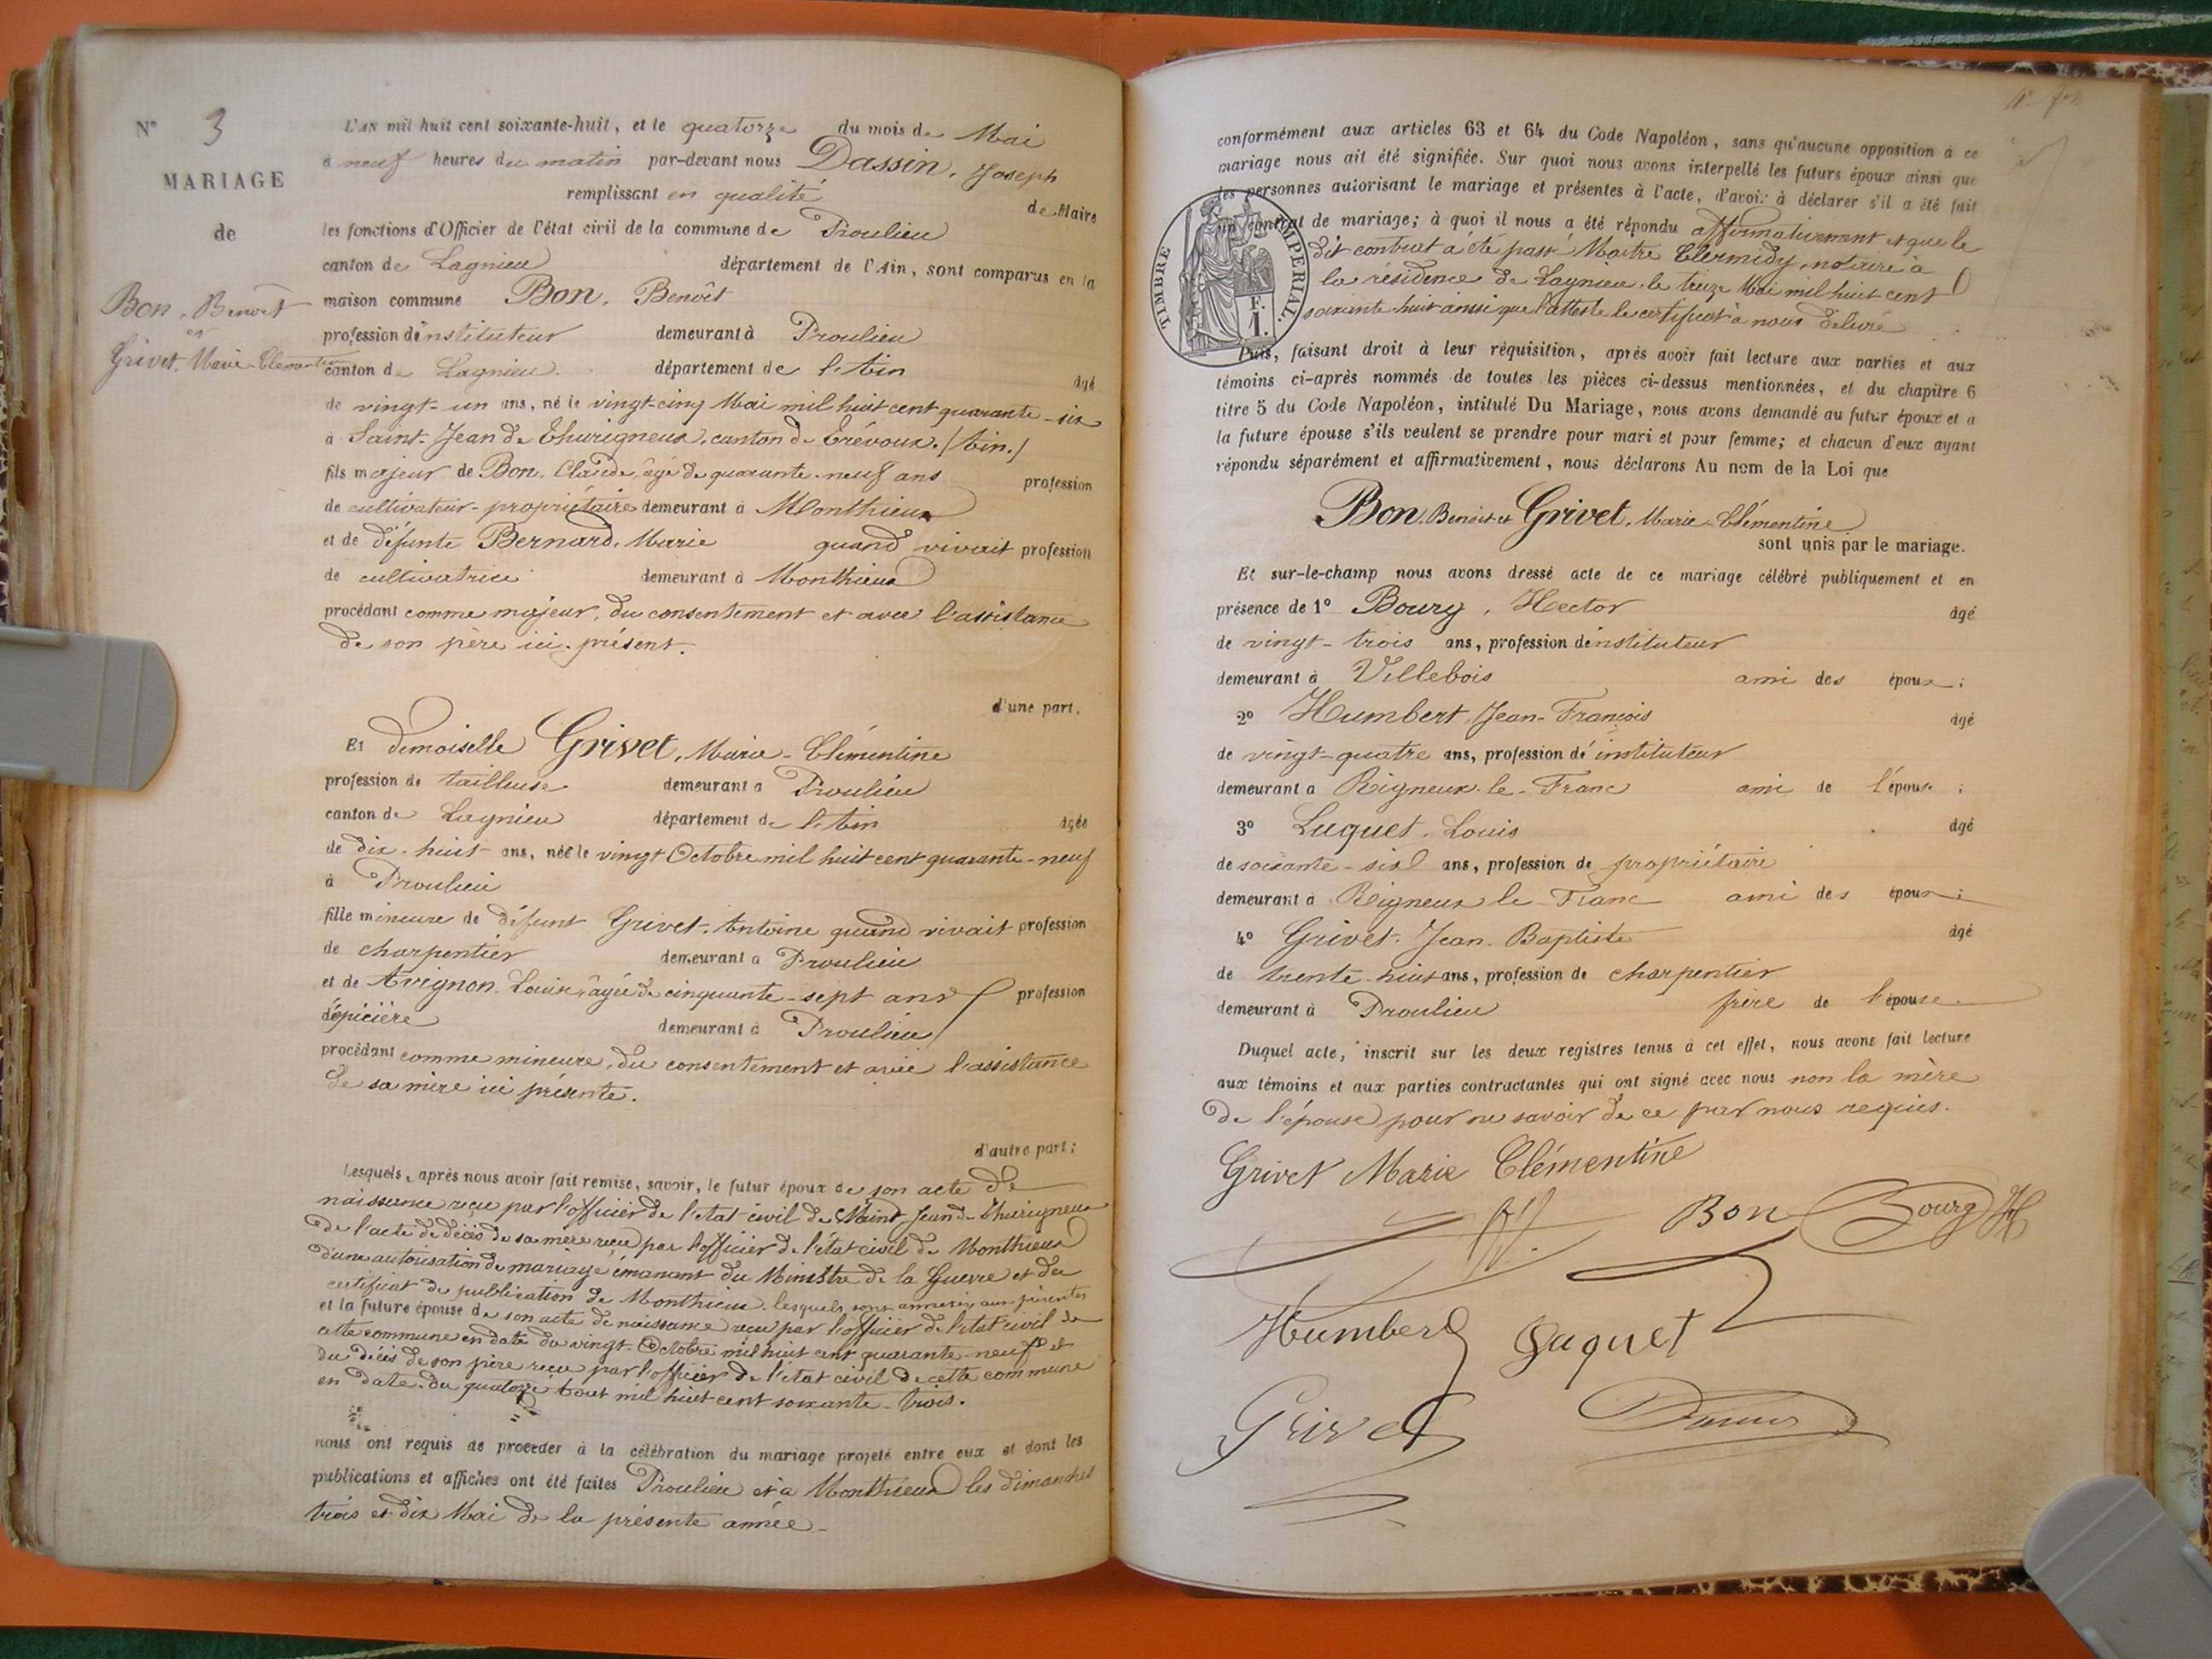 N° 3
MARIAGE
de
Bon, Benoît
et
Grivet, Marie-Clémentine
L'AN mil huit cent soixante-huit, et le quatorze du mois de Mai
à neuf heures du matin par-devant nous Dassin, Joseph
remplissant en qualité de Maire
les fonctions d'Officier de l'état civil de la commune de Proulieu
canton de Lagnieu département de l'Ain, sont comparus en la
maison commune Bon, Benoît
profession d'instituteur demeurant à Proulieu
canton de Lagnieu département de l'Ain âgé
de vingt-un ans, né le vingt-cinq Mai mil huit cent quarante-six
à Saint-Jean de Thurigneux, canton de Trévoux. (Ain.)
fils majeur de Bon, Claude, âgé de quarante-neuf ans profession
de cultivateur-propriétaire demeurant à Monthieux
et de défunte Bernard, Marie quand vivait profession
de cultivatrice demeurant à Monthieux
procédant comme majeur, du consentement et avec l'assistance
de son père ici présent.
d'une part.
Et demoiselle Grivet, Marie-Clémentine
profession de tailleuse demeurant à Proulieu
canton de Lagnieu département de l'Ain âgée
de dix-huit ans, née le vingt Octobre mil huit cent quarante-neuf
à Proulieu
fille mineure de défunt Grivet, Antoine quand vivait profession
de charpentier demeurant à Proulieu
et de Avignon, Louise, âgée de cinquante-sept ans profession
d'épicière demeurant à Proulieu
procédant comme mineure, du consentement et avec l'assistance
de sa mère ici présente.
d'autre part;
Lesquels, après nous avoir fait remise, savoir, le futur époux de son acte de
naissance reçu par l'officier de l'état civil de Saint Jean de Thurigneux
de l'acte de décès de sa mère reçu par l'officier de l'état civil de Monthieux
d'une autorisation de mariage émanant du Ministre de la Guerre et du
certificat de publication de Monthieux, lesquels sont annexés aux présentes
et la future épouse de son acte de naissance reçu par l'officier de l'état civil de
cette commune en date du vingt Octobre mil huit cent quarante-neuf et
du décès de son père reçu par l'officier de l'état civil de cette commune
en date du quatorze Aout mil huit cent soixante-trois.
nous ont requis de procéder à la célébration du mariage projeté entre eux et dont les
publications et affiches ont été faites Proulieu et à Monthieux les dimanches
trois et dix Mai de la présente année
conformément aux articles 63 et 64 du Code Napoléon, sans qu'aucune opposition à ce
mariage nous ait été signifiée. Sur quoi nous avons interpellé les futurs époux ainsi que
les personnes autorisant le mariage et présentes à l'acte, d'avoir à déclarer s'il a été fait
un contrat de mariage; à quoi il nous a été répondu affirmativement et que le
dit contrat a été passé Maitre Clermidy, notaire à
la résidence de Lagnieu le treize Mai mil huit cent
soixante huit ainsi que l'atteste le certificat à nous délivré
TIMBRE IMPERIAL
F.
1.
Puis, faisant droit à leur réquisition, après avoir fait lecture aux parties et aux
témoins ci-après nommés de toutes les pièces ci-dessus mentionnées, et du chapitre 6
titre 5 du Code Napoléon, intitulé Du Mariage, nous avons demandé au futur époux et a
la future épouse s'ils veulent se prendre pour mari et pour femme; et chacun d'eux ayant
répondu séparément et affirmativement, nous déclarons Au nom de la Loi que
Bon, Benoit et Grivet, Marie-Clémentine
sont unis par le mariage.
Et sur-le-champ nous avons dressé acte de ce mariage célébré publiquement et en
présence de 1° Bourg, Hector âgé
de vingt-trois ans, profession d'instituteur
demeurant à Villebois ami des époux;
2° Humbert, Jean-François âgé
de vingt-quatre ans, profession d'instituteur
demeurant a Rigneux-le-Franc ami de l'épouse;
3° Luquet, Louis âgé
de soixante-six ans, profession de propriétaire
demeurant à Rigneux le-Franc ami des époux;
4° Grivet, Jean-Baptiste âgé
de trente-huit ans, profession de charpentier
demeurant à Proulieu frère de l'épouse.
Duquel acte, inscrit sur les deux registres tenus à cet effet, nous avons fait lecture
aux témoins et aux parties contractantes qui ont signé avec nous non la mère
de l'épouse pour ne savoir de ce par nous requis.
Grivet Marie Clémentine
Bon Bourg H
Humbert Luquet
Grivet Dassin